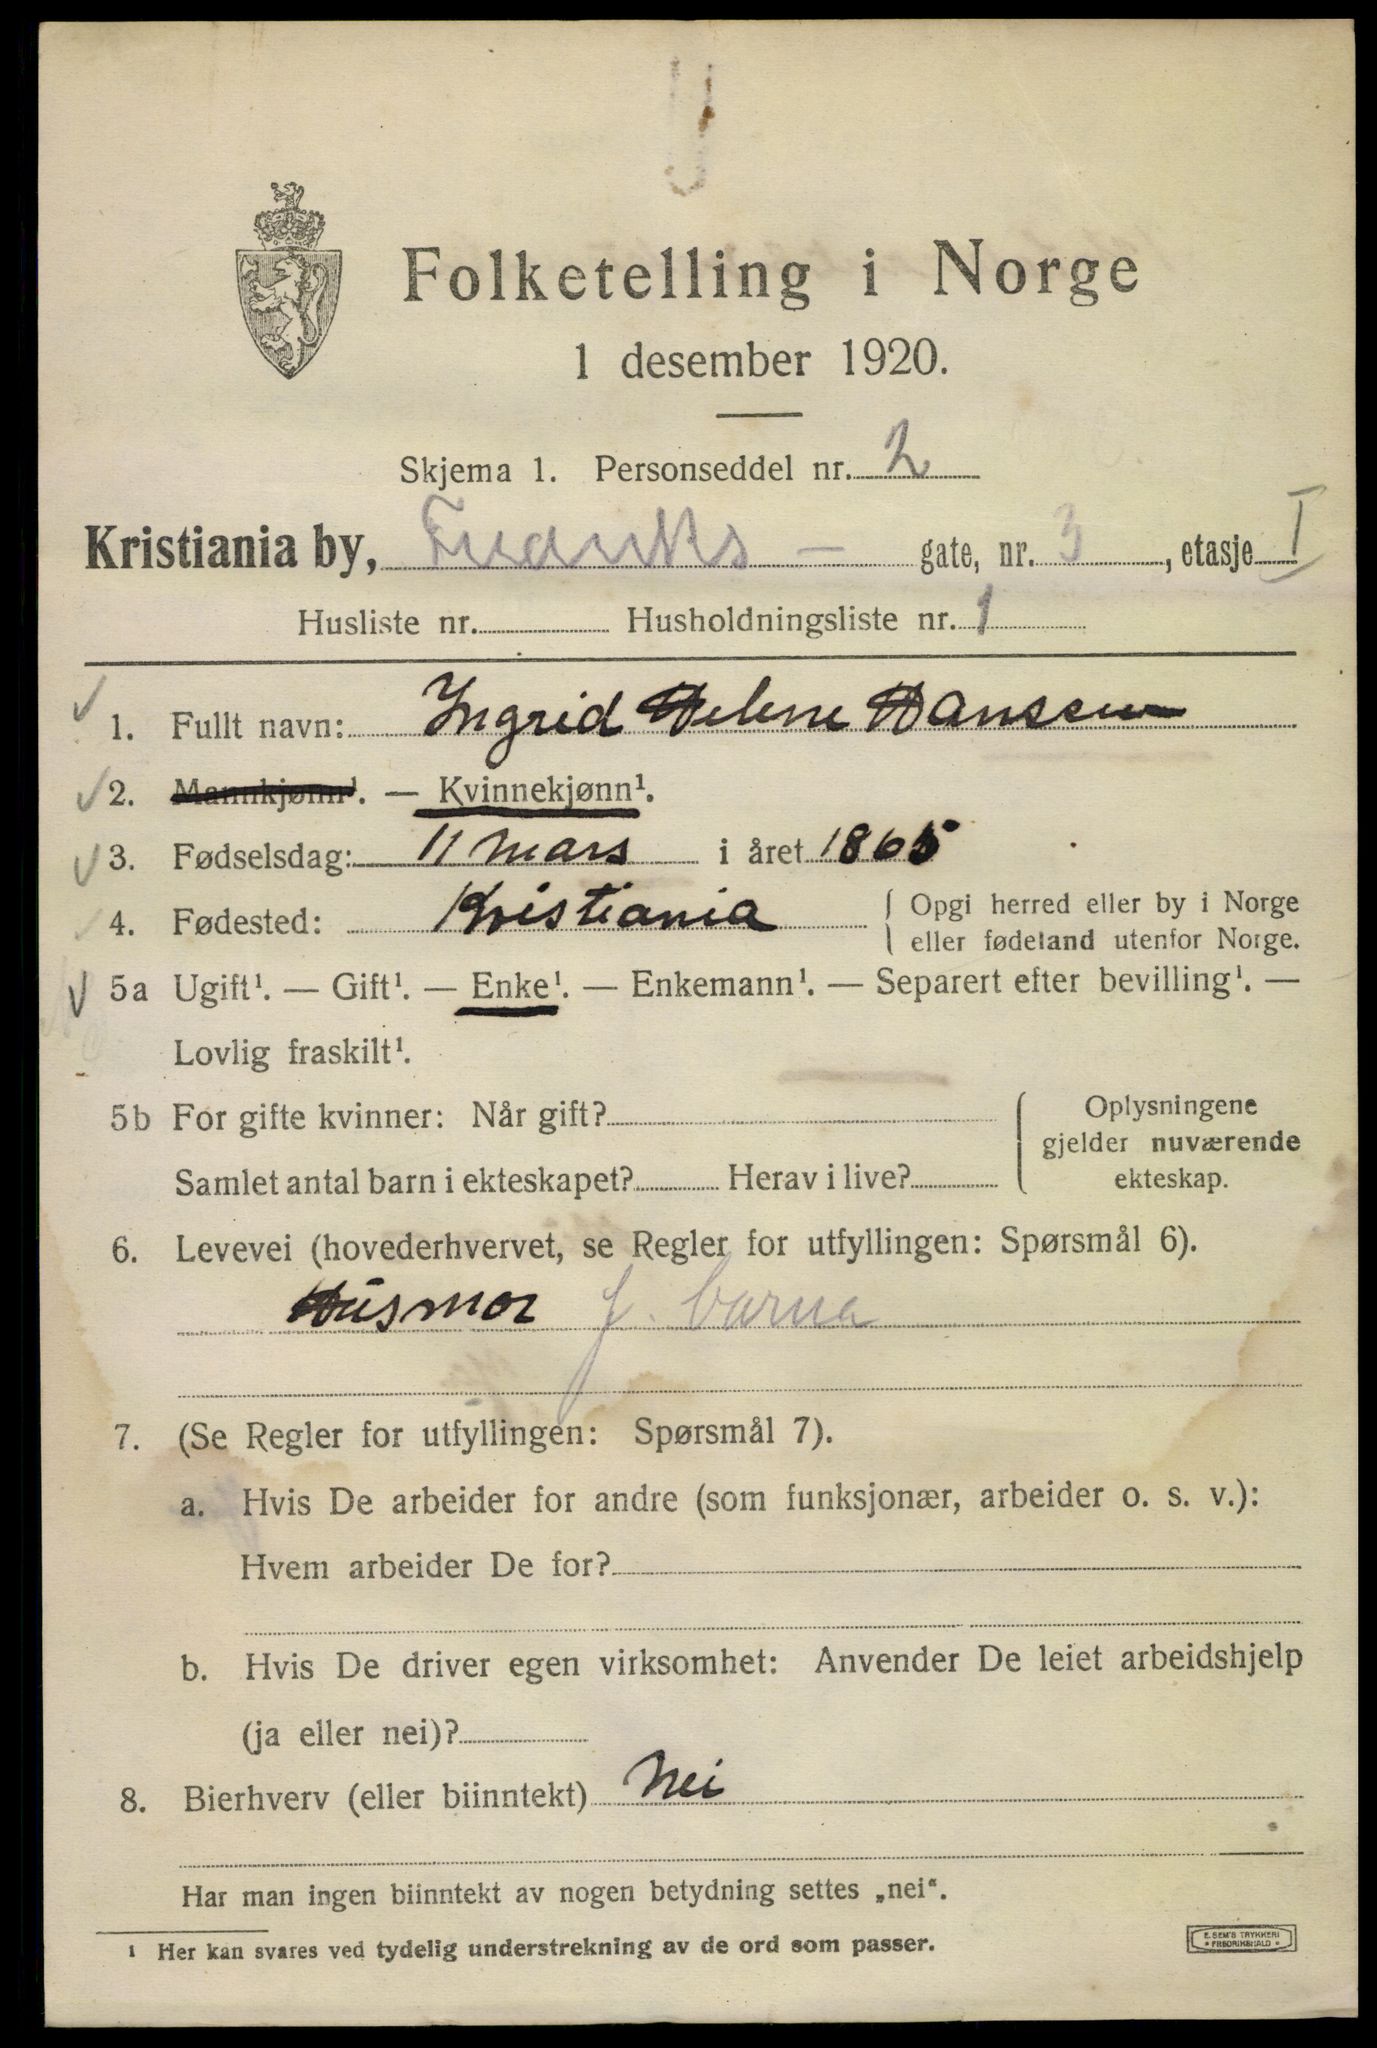 Folketelling i Norge
1 desember 1920.
Skjema 1. Personseddel nr. 2
Kristiania by, Fredriks - gate, nr. 3, etasje I
Husliste nr. Husholdningsliste nr. 1
1. Fullt navn: Ingrid Helene Hanssen
2. Mannkjønn¹. — Kvinnekjønn¹.
3. Fødselsdag: 11 mars i året 1865
4. Fødested: Kristiania { Opgi herred eller by i Norge
eller fødeland utenfor Norge.
5a Ugift¹. — Gift¹. — Enke¹. — Enkemann¹. — Separert efter bevilling¹. —
Lovlig fraskilt¹.
5b For gifte kvinner: Når gift? { Oplysningene
gjelder nuværende
Samlet antal barn i ekteskapet? Herav i live? ekteskap.
6. Levevei (hovederhvervet, se Regler for utfyllingen: Spørsmål 6).
Husmor f. barna
7. (Se Regler for utfyllingen: Spørsmål 7).
a. Hvis De arbeider for andre (som funksjonær, arbeider o. s. v.):
Hvem arbeider De for?
b. Hvis De driver egen virksomhet: Anvender De leiet arbeidshjelp
(ja eller nei)?
8. Bierhverv (eller biinntekt) Nei
Har man ingen biinntekt av nogen betydning settes „nei“.
¹ Her kan svares ved tydelig understrekning av de ord som passer.
E. SEM'S TRYKKERI
• FREDRIKSHALD •